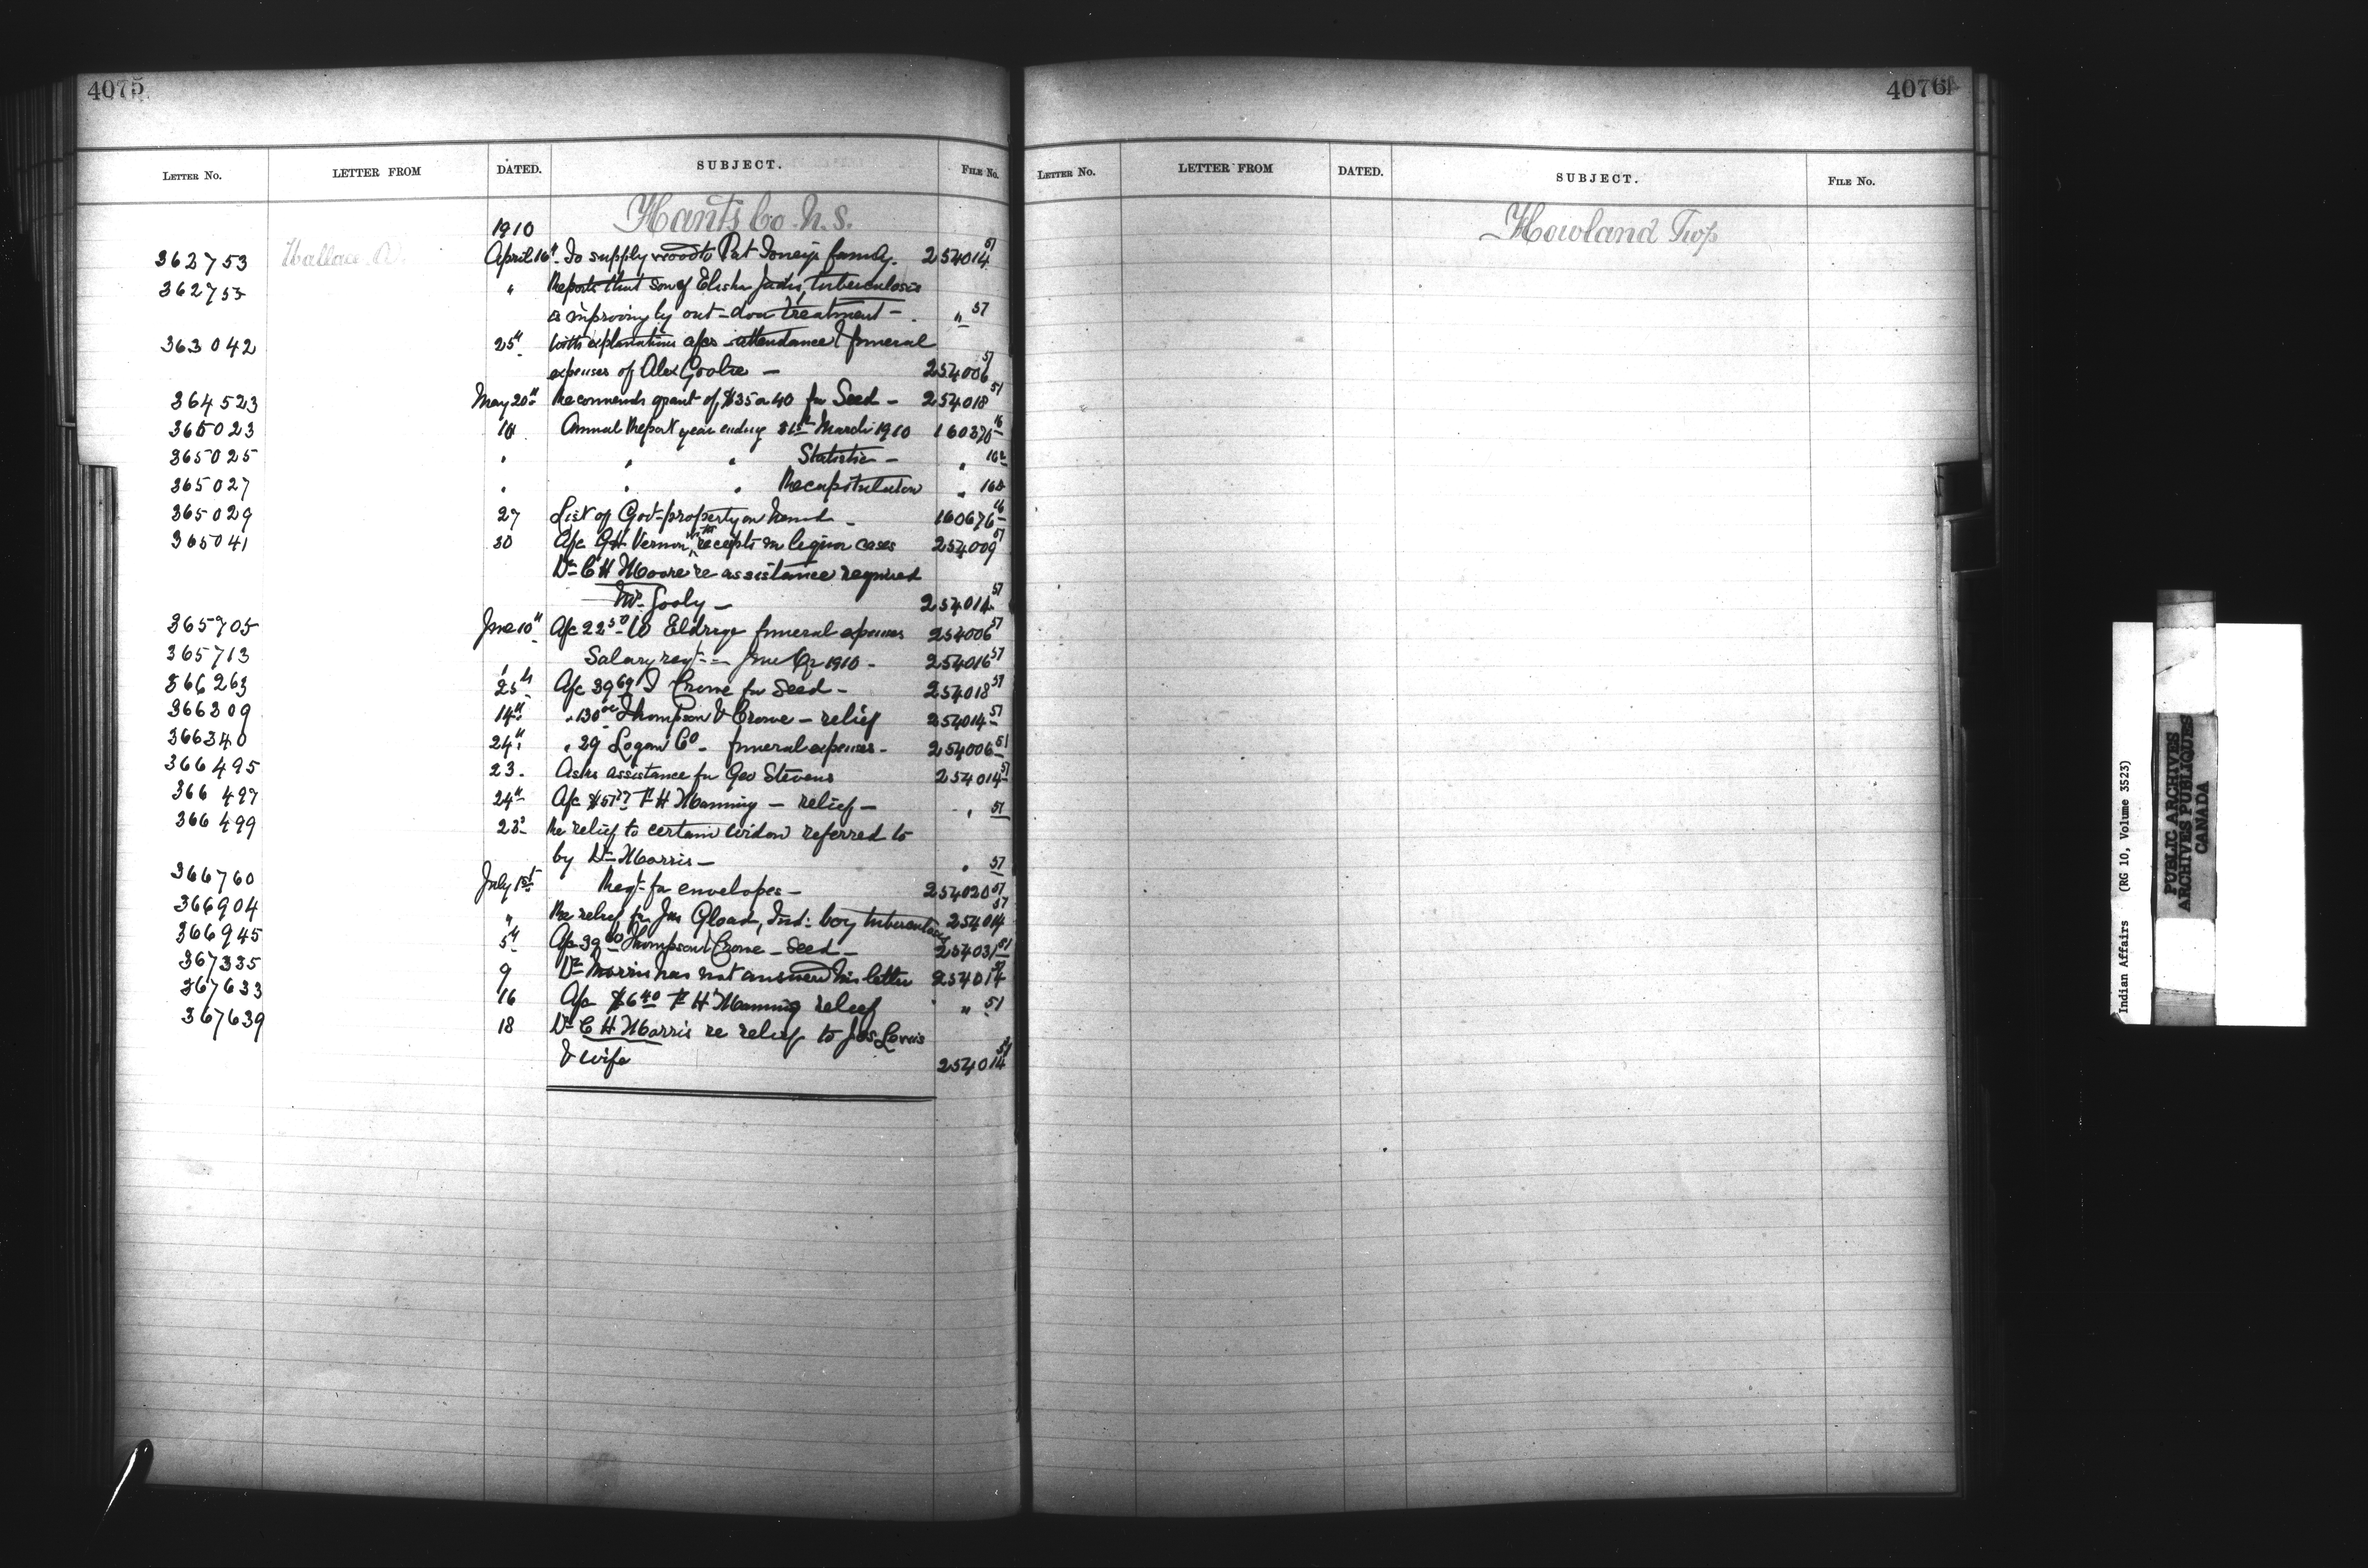 4075
LETTER No. LETTER FROM DATED. SUBJECT. FILE No.
Hants Co. N.S.
1910
362753 Wallace A. April 16th To supply wood to Pat Toney's family. 254014 57
362755 " Reports that son of Elisha Jadis, tuberculosis
is improving by out-door treatment - " 57
363042 25th With explanations a/cs attendance & funeral
expenses of Alex Gooltie - 254006 57
364523 May 20th Recommends grant of $35 or 40 for Seed - 254018 57
365023 18 Annual Report year ending 31st March 1910 160370 16
365025 " " " Statistic - " 16
365027 " " " Recapitulation " 16
365029 27 List of Govt property on hand - 160676 16
365041 30 A/c GH Vernon with receipts in liquor cases 254009 57
Dr C H Moore re assistance required
Mr. Gooly - 254014 57
365705 June 10th A/c 22 50 W Eldrige funeral expenses 254006 57
365713 " Salary reqt - June Qr 1910 - 254016 57
366263 25th A/c 39 69 I Crowe for Seed - 254018 57
366309 14th " 130 00 Thompson & Crowe - relief 254014 57
366340 24th " 29 Logan Co - funeral expenses - 254006 57
366495 23. Asks assistance for Geo Stevens 254014 57
366497 24th A/c $57 77 F H Manning - relief - " 57
366499 23 Re relief to certain widow referred to
by Dr Morris - " 57
366760 July 1st Reqt for envelopes - 254020 57
366904 " Re relief for Jas Gload, Ind: boy tuberculosis 254014 57
366945 5th A/c 39 60 Thompson & Crowe - Seed - 254031 57
367335 9 Dr Morris has not answered his letter 254014 57
367633 16 A/c $6 40 F H Manning relief " 57
367639 18 Dr C H Morris re relief to Jos. Lewis
& wife 254014 57
4076
LETTER No. LETTER FROM DATED. SUBJECT. FILE No.
Howland Twp
Indian Affairs (RG 10, Volume 3523)
PUBLIC ARCHIVES
ARCHIVES PUBLIQUES
CANADA